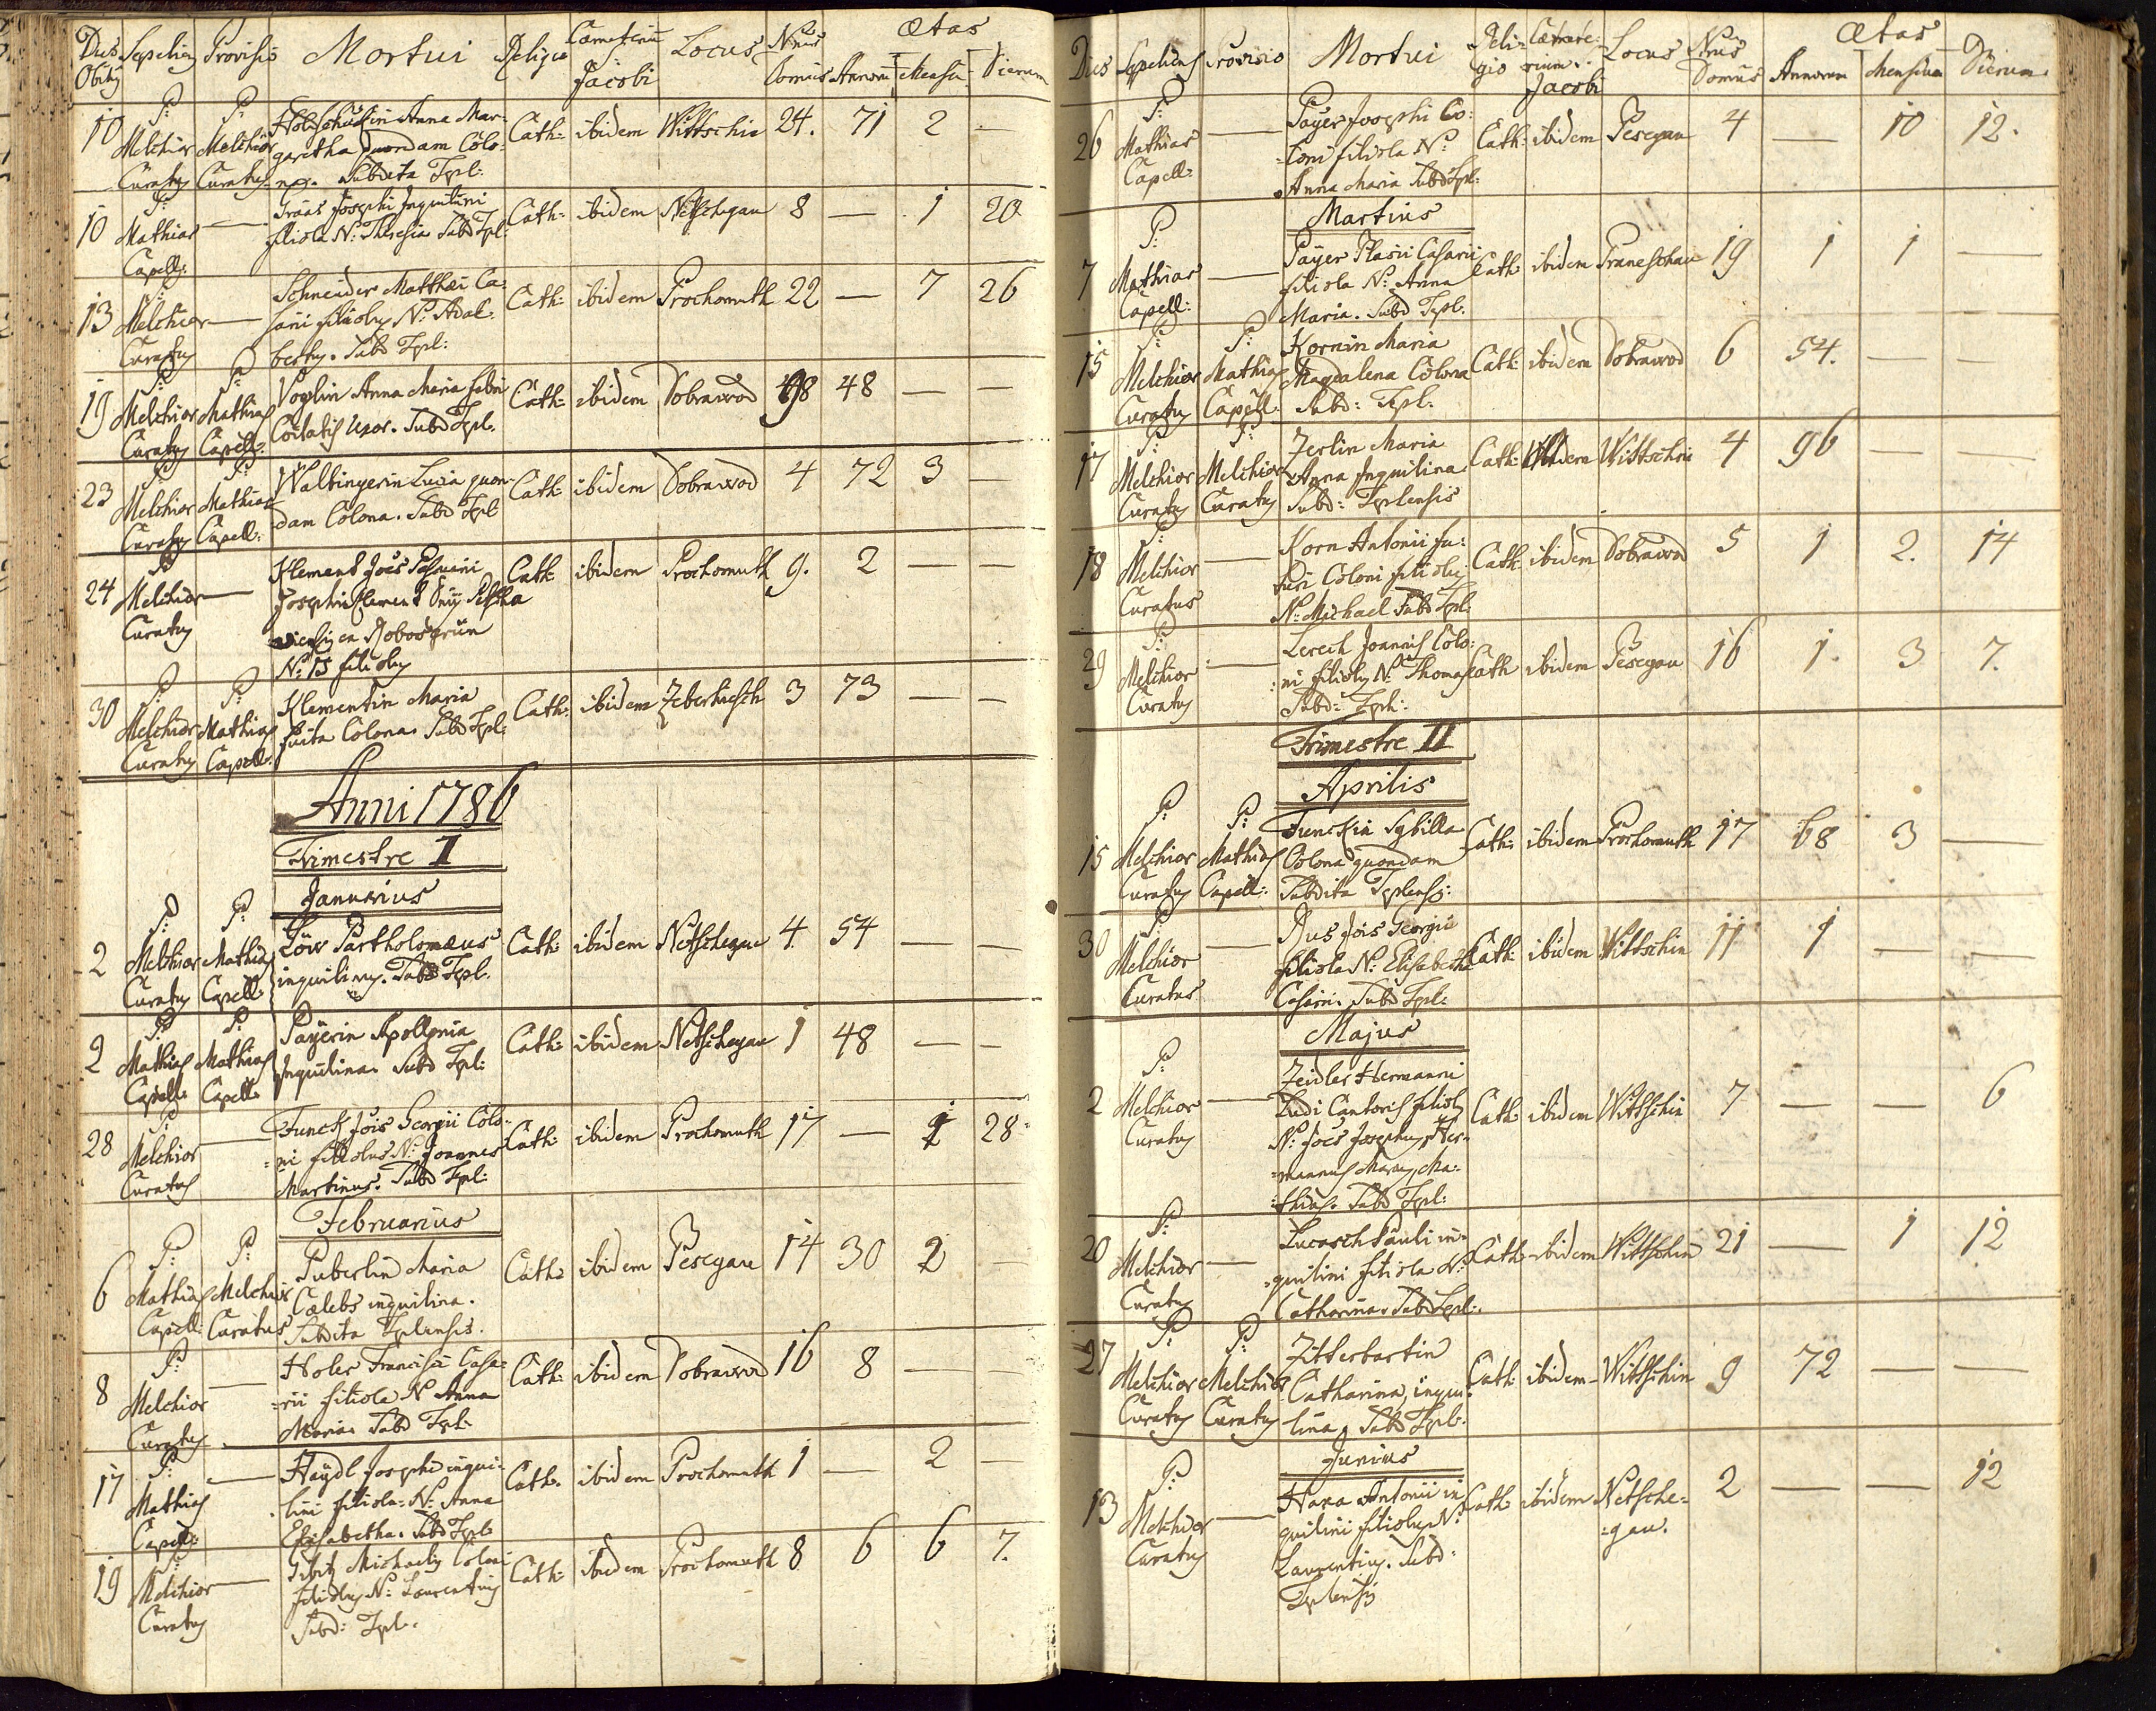 Dies Obitus Sepeliens Provisio Mortui Religio Coemeterium S: Jacobi Locus Nrus Domus Ætas Annorum Mensium Dierum
10 P: Melchior Curatus P: Melchior Curatus Anna Mar-
garetha quondam Colo-
na. Subdita Tpl: Cath: ibidem Wittschin 24. 71 2 —
10 P: Mathias Capell: — Josephi Inquilini
filiola N: Theresia Subd Tpl: Cath: ibidem Netschegau 8 — 1 20
13 P: Melchior Curatus — Schneider Matthæi Ca-
sarii filiolus N: Adal-
bertus. Subd Tpl: Cath: ibidem Prochomuth 22 — 7 26
19 P: Melchior Curatus P: Mathias Capell: Voglin Anna Maria
Uxor. Subd Tpl. Cath: ibidem Dobrawod 48 — —
23 P: Melchior Curatus P: Mathias Capell: Walbingerin Lucia quon-
dam Colona. Subd Tpl Cath: ibidem Dobrawod 4 72 3 —
24 P: Melchior Curatus — Klement Jois
Josephi Klement
N: 15 filiolus Cath: ibidem Prochomuth 9. 2 — —
30 P: Melchior Curatus P: Mathias Capell. Klementin Maria
fuita Colona. Subd Tpl: Cath: ibidem Zeberhiesch 3 73 — —
Anni 1786
Trimestre I
Januarius
2 P: Melchior Curatus P: Mathias Capell: Löw Partholomæus
inquilinus. Subd Tpl. Cath: ibidem Netschegau 4. 54 — —
2 P: Mathias Capell: P: Mathias Capell: Payerin Apollonia
Inquilina. Subd Tpl: Cath: ibidem Netschegau 1 48 — —
28 P: Melchior Curatus — Funck Jois Georgii Colo-
ni filiolus N: Joannes
Martinus. Subd Tpl: Cath: ibidem Prochomuth 17 — 1 28
Februarius
6 P: Mathias Capell: P: Melchior Curatus Puberlin Maria
Cælebs inquilina.
Subdita Tplensis. Cath: ibidem Pesegau 14 30 2 —
8 P: Melchior Curatus — Holer Francisci Casa-
rii filiola N Anna
Maria Subd Tpl. Cath: ibidem Dobrawod 16 8 — —
17 P: Mathias Capell: — Haydl Josephi inqui-
lini filiola N: Anna
Elisabetha. Subd Tpl. Cath. ibidem Prochomuth 1 — 2 —
19 P: Melchior Curatus — Michaelis Coloni
filiolus N: Laurentius
Subd: Tpl. Cath: ibidem Prochomuth 8 6 6 7.
Dies Sepeliens Provisio Mortui Reli-gio Jacobi Locus Nrus Domus Ætas Annorum Mensium Dierum
26 P: Mathias Capell: — Payer Josephi Co-
loni filiola N:
Anna Maria Subd Tpl: Cath: ibidem Pesegau 4 — 10 12.
Martius
7 P: Mathias Capell: — Payer Plasii Casarii
filiola N: Anna
Maria. Subd Tpl. Cath ibidem Praneschau 19 1 1 —
15 P: Melchior Curatus P: Mathias Capell: Kornin Maria
Magdalena Colona
Subd: Tpl. Cath: ibidem Dobrawod 6 54. — —
17 P: Melchior Curatus P: Melchior Curatus Zerlin Maria
Anna Inquilina
Subd: Tplensis Cath: ibidem Wittschin 4 96 — —
18 P: Melchior Curatus — Korn Antonii fu-
turi Coloni filiolus
N: Michael Subd Tpl: Cath: ibidem Dobrawod 5 1 2. 14
29 P: Melchior Curatus — Lerech Joannis Colo-
ni filiolus N: Thomas
Subd: Tpl: Cath ibidem Pesegau 16 1. 3 7.
Trimestre II
Aprilis
15 P: Melchior Curatus P: Mathias Capell: Funckin Sybilla
Colona quondam
Subdita Tplensis: Cath: ibidem Prochomuth 17 68 3 —
30 P: Melchior Curatus — Rus Jois Georgii
filiola N: Elisabetha
Casarii. Subd Tpl: Cath: ibidem Wittschin 11 1 — —
Majus
2 P: Melchior Curatus — Zeidler Hermanni
Ludi Cantoris filiolus
N: Joës Josephus Her-
mannus Marcus Ma-
thias. Subd Tpl: Cath: ibidem Wittschin 7 — — 6
20 P: Melchior Curatus — Lucasch Pauli in-
quilini filiola N:
Catharina. Subd Tpl: Cath: ibidem Wittschin 21 — 1 12
27 P: Melchior Curatus P: Melchior Curatus Zitterbartin
Catharina, inqui-
lina, Subd Tpl. Cath: ibidem Wittschin 9 72 — —
Junius
13 P: Melchior Curatus — Hara Antonii in
quilini filiolus N:
Laurentius. Subd:
Tplensis Cath: ibidem Netsche-
gau. 2 — — 12